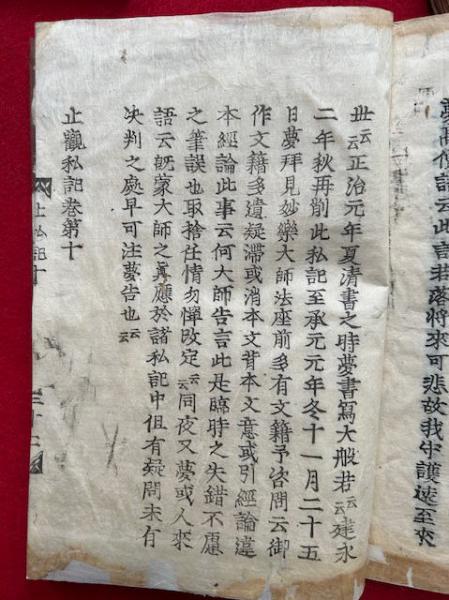 夢爾傳語云此言若落將來可悲故我守護速至來
世云云正治元年夏清書之時夢書寫大般若云云建永
二年秋再削此私記至承元元年冬十一月二十五
日夢拜見妙樂大師法座前多有文籍予咨問云御
作文籍多遺疑滯或消本文背本文意或引經論違
本經論此事云何大師告言此是臨時之失錯不慮
之筆誤也取捨任情勿憚改定云云同夜又夢或人來
語云既蒙大師之冥願於諸私記中但有疑問未有
決判之處早可注夢告也云云
止觀私記卷第十
止私記十